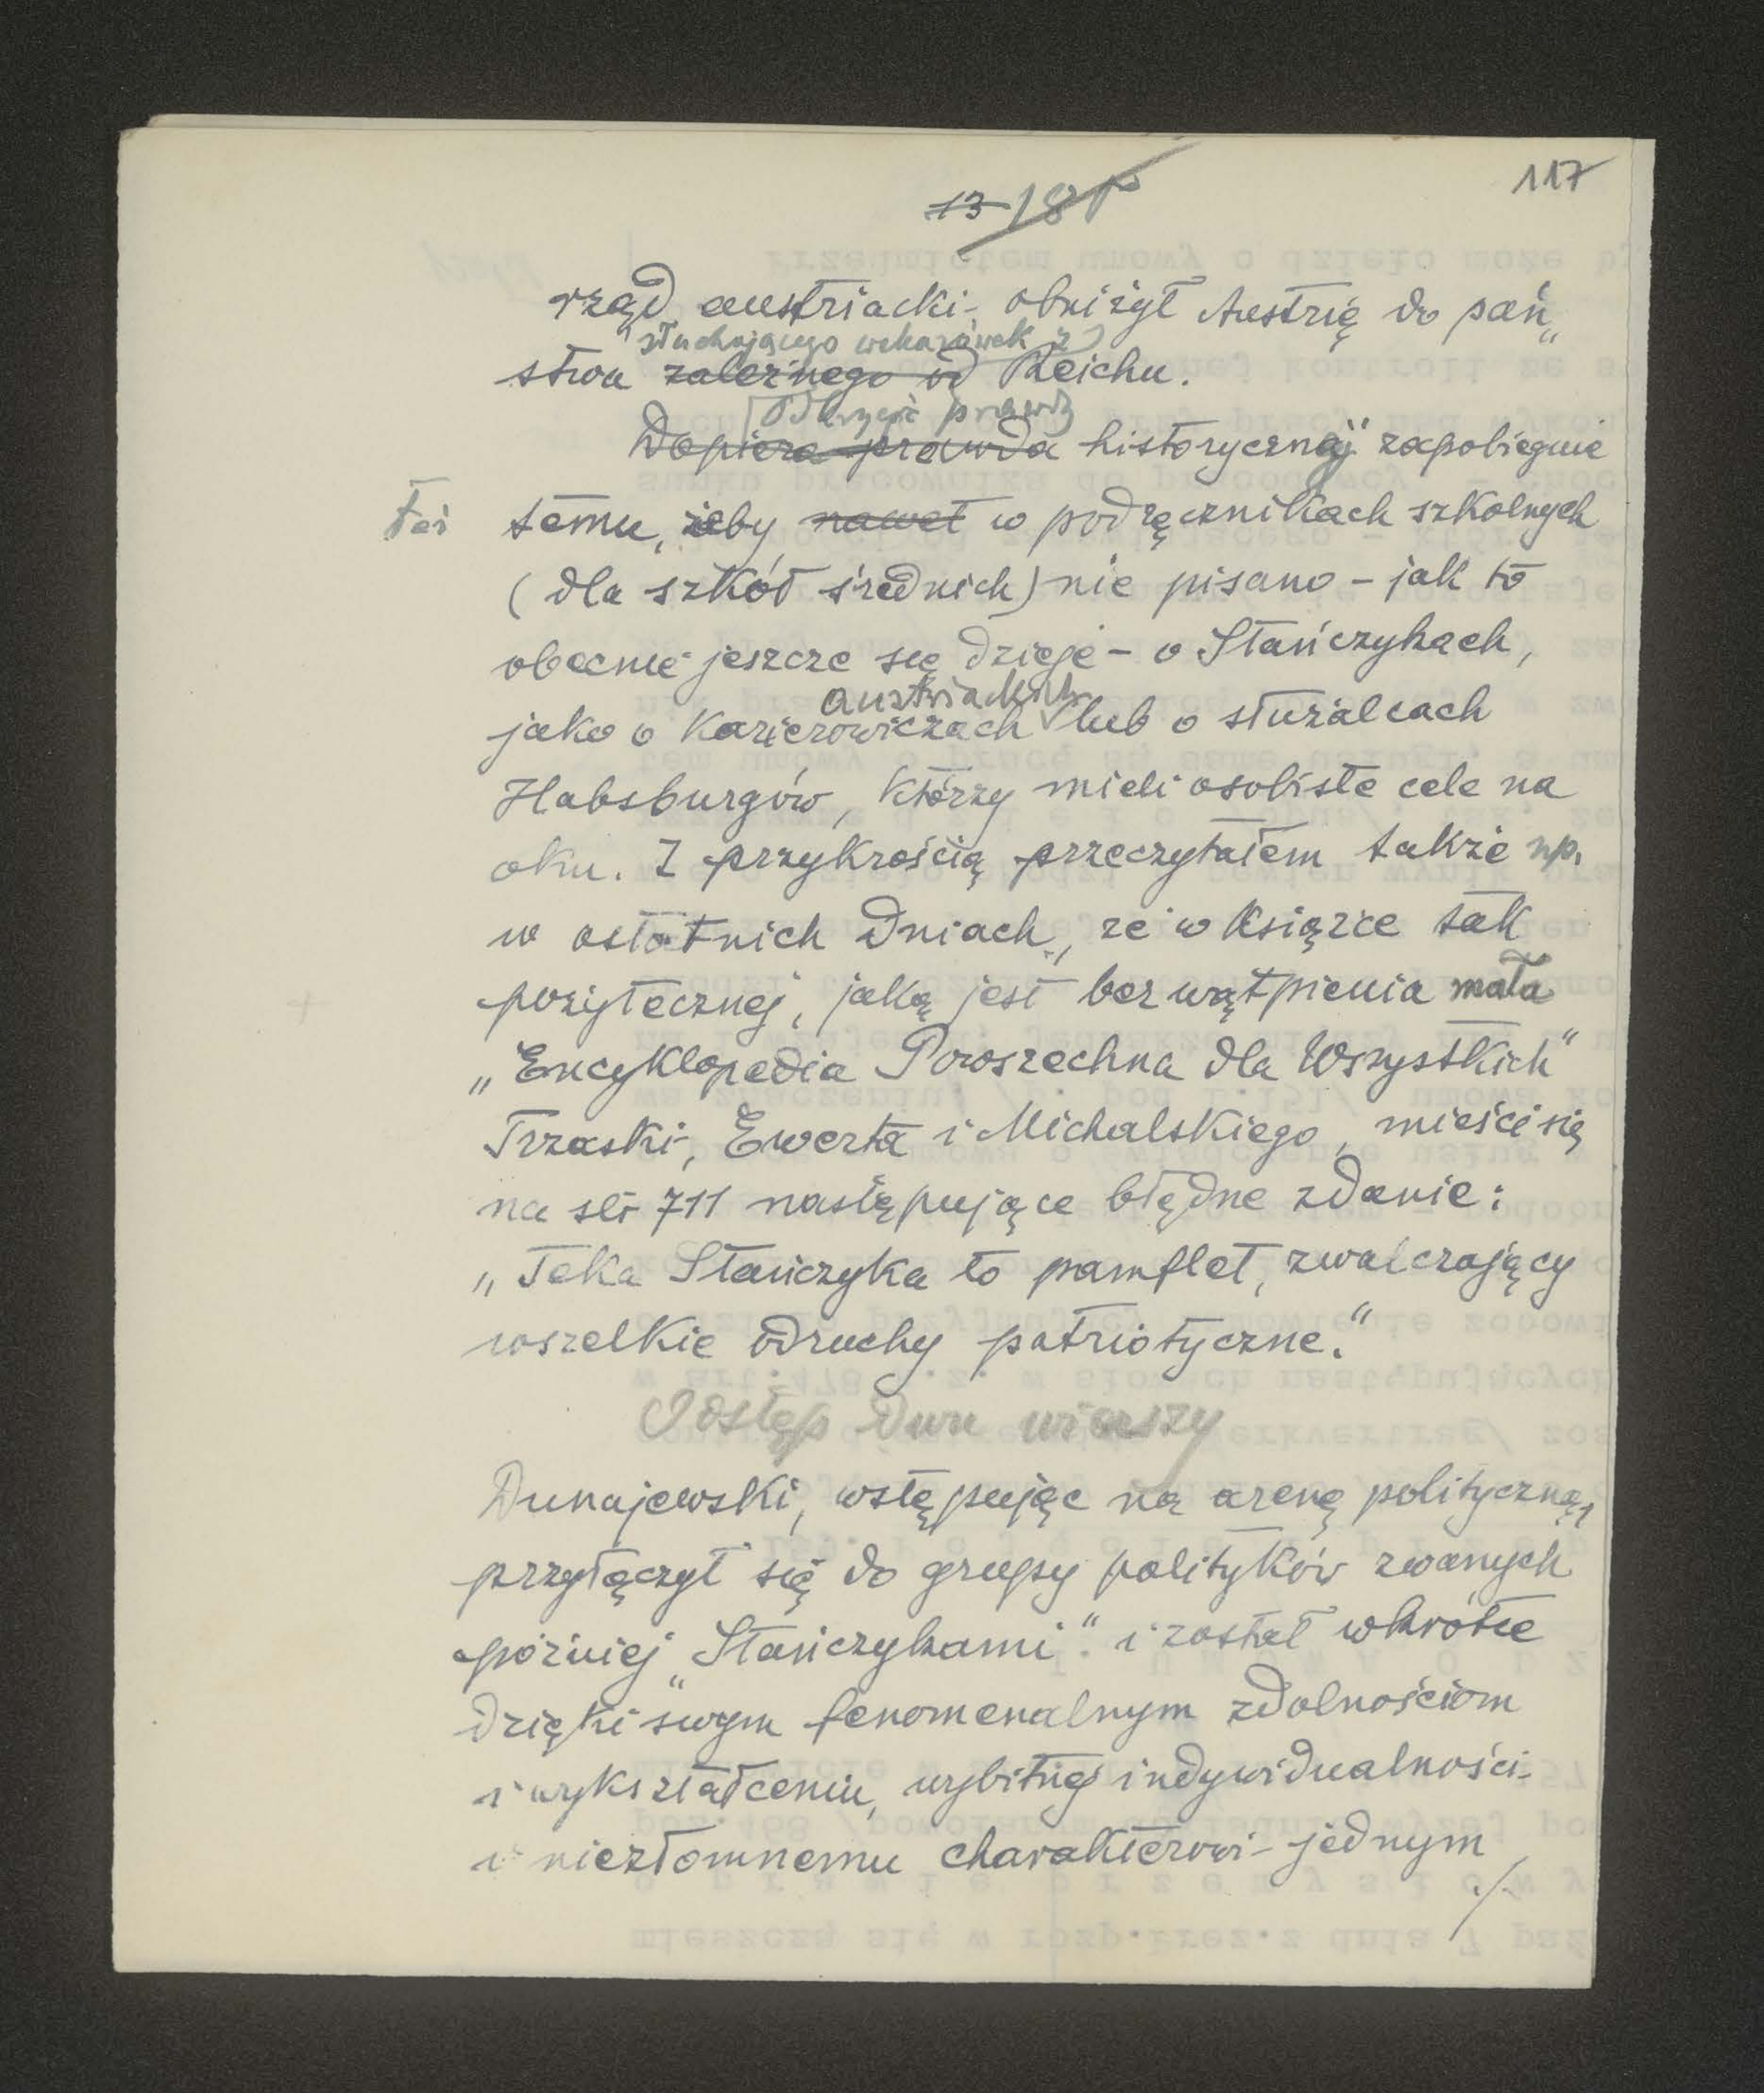 117
13 18
rząd austriacki obniżył Austrię do pań„
słuchającego wskazówek z
stwa zależnego od Reichu.
prawdy
Dopiero prawda historycznej zapobiegnie
też temu, żeby nawet w podręcznikach szkolnych
(dla szkół średnich) nie pisano – jak to
obecnie jeszcze się dzieje – o Stańczykach,
austriackich
jako o karierowiczach lub o służalcach
Habsburgów, którzy mieli osobiste cele na
oku. Z przykrością przeczytałem także np.
w ostatnich dniach, że w książce tak
pożytecznej, jaką jest bez wątpienia mała
„Encyklopedia Powszechna dla Wszystkich"
Trzaski, Ewerta i Michalskiego, mieści się
na str 711 następujące błędne zdanie:
„Teka Stańczyka to pamflet, zwalczający
wszelkie odruchy patriotyczne."
Odstęp dwu wierszy
Dunajewski, wstępując na arenę polityczną,
przyłączył się do grupy polityków zwanych
później „Stańczykami" i został wkrótce
dzięki swym fenomenalnym zdolnościom
i wykształceniu, wybitnej indywidualności
i niezłomnemu charakterowi – jednym
./.